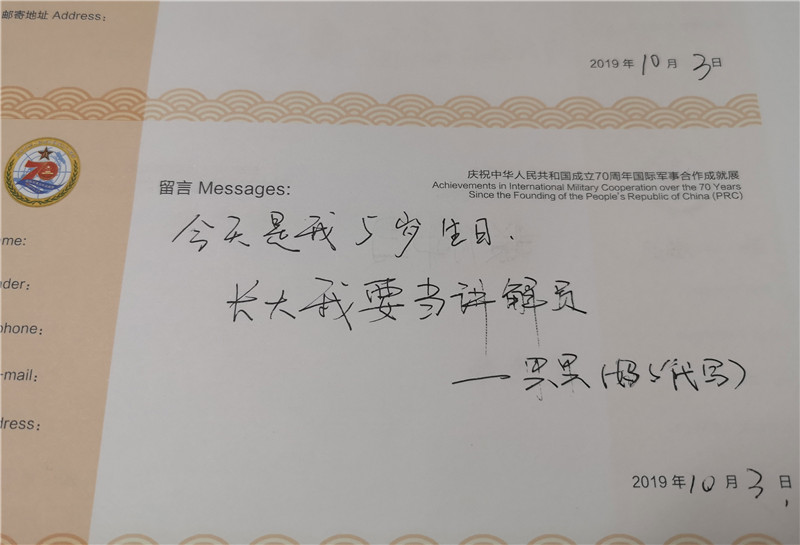 邮寄地址 Address:
2019年10月3日
70
留言 Messages:
庆祝中华人民共和国成立70周年国际军事合作成就展
Achievements in International Military Cooperation over the 70 Years
Since the Founding of the People's Republic of China (PRC)
ame:
nder:
phone:
-mail:
dress:
今天是我5岁生日.
长大我要当讲解员
——果果(妈妈代写)
2019年10月3日